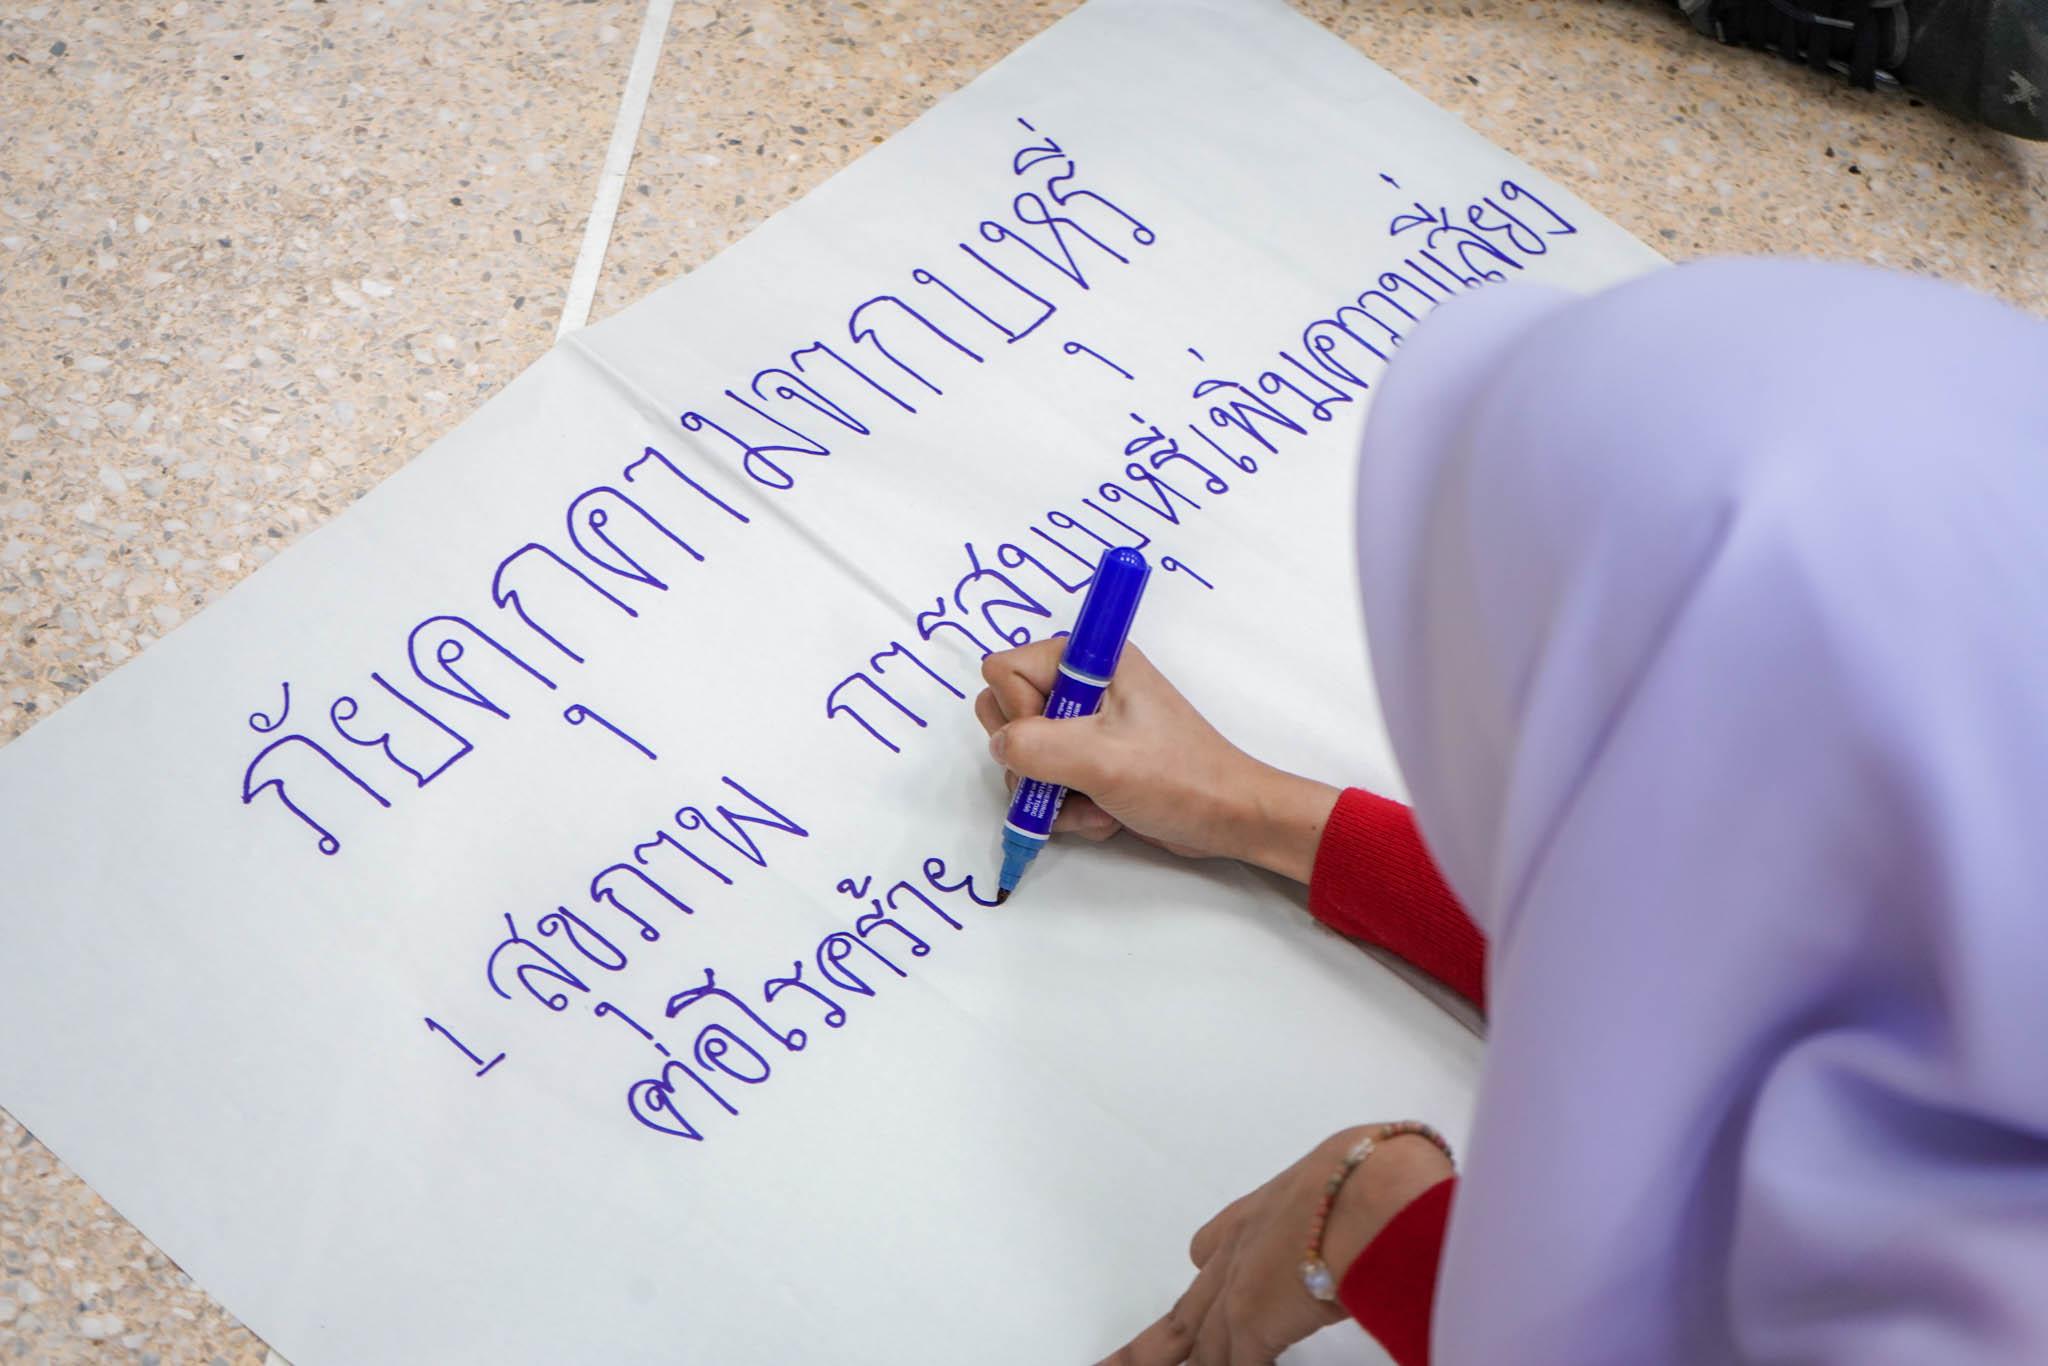 ภัยคุกคามจากบุหรี่
1 สุขภาพ การสูบบุหรี่เพิ่มความเสี่ยง
ต่อโรคร้าย